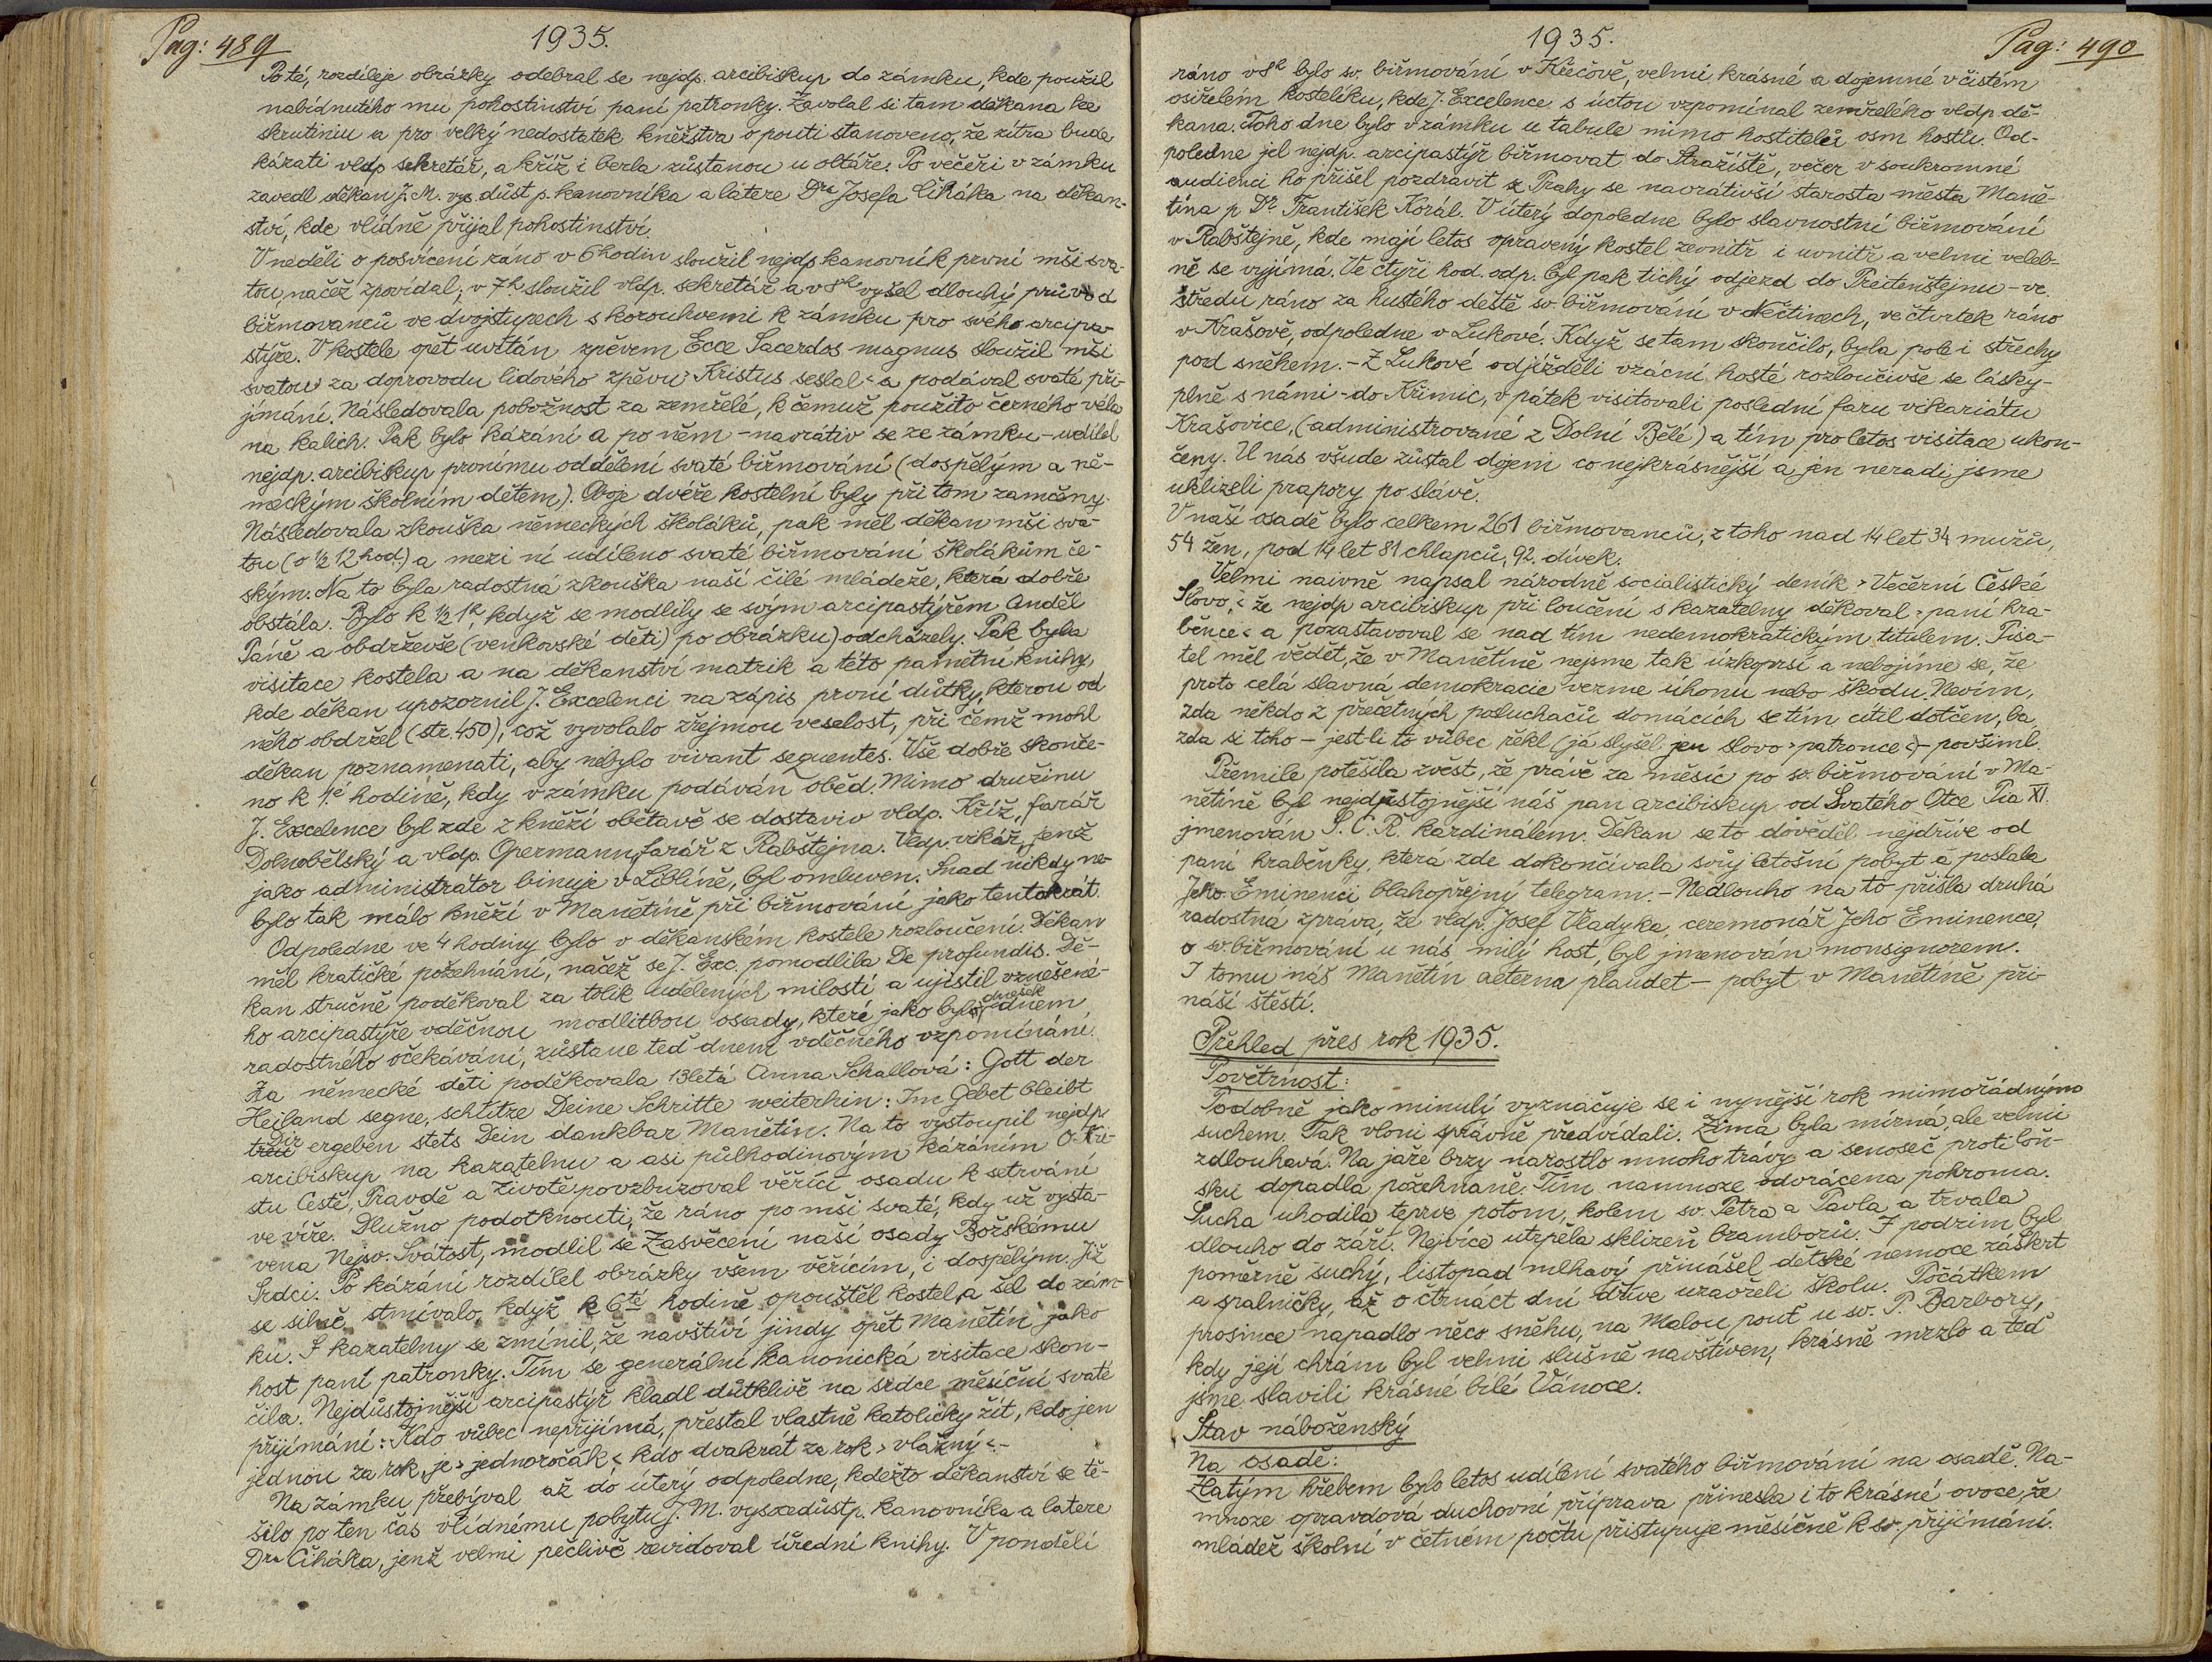 Pag: 489
1935.
Poté, rozdíleje obrázky odebral se nejdp. arcibiskup do zámku, kde použil
nabídnutého mu pohostinství paní patronky. Zavolal si tam děkana ke
skrutiniu a pro velký nedostatek kněžstva o pouti stanoveno, že zítra bude
kázati vldp sekretář, a kříž i berla zůstanou u oltáře. Po večeři v zámku
zavedl děkan J. M. vys. důst p. kanovníka a latere Dra Josefa Čiháka na děkan-
ství, kde vlídně přijal pohostinství.
V neděli o posvícení ráno v 6 hodin sloužil nejdp kanovník první mši sva-
tou, načež zpovídal; v 7h sloužil vldp. sekretář a v 8h vyšel dlouhý průvod
biřmovanců ve dvojstupech s korouhvemi k zámku pro svého arcipa-
stýře. V kostele opět uvítán zpěvem Ecce Sacerdos magnus sloužil mši
svatou za doprovodu lidového zpěvu "Kristus seslal" a podával svaté při-
jímání. Následovala pobožnost za zemřelé, k čemuž použito černého véla
na kalich. Pak bylo kázání a po něm - navrátiv se ze zámku - udílel
nejdp. arcibiskup prvnímu oddělení svaté biřmování (dospělým a ně-
meckým školním dětem). Oboje dvéře kostelní byly při tom zamčeny.
Následovala zkouška německých školáků, pak měl děkan mši sva-
tou (o ½ 12 hod.) a mezi ní udíleno svaté biřmování školákům če-
ským. Na to byla radostná zkouška naší čilé mládeže, která dobře
obstála. Bylo k ½ 1h, když se modlily se svým arcipastýřem Anděl
Páně a obdrževše (venkovské děti) po obrázku) odcházely. Pak byla
visitace kostela a na děkanství matrik a této pamětní knihy,
kde děkan upozornil J. Excelenci na zápis první důtky, kterou od
něho obdržel (str. 450); což vyvolalo zřejmou veselost, při čemž mohl
děkan poznamenati, aby nebylo vivant sequentes. Vše dobře skonče-
no k 1.é hodině, kdy v zámku podáván oběd. Mimo družinu
J. Excelence byl zde z kněží obětavě se dostaviv vldp. Kříž, farář
Dolnobělský a vldp. Opermann, farář z Rabštejna. Vldp. vikář, jenž
jako administrátor binuje v Liblíně, byl omluven. Snad nikdy ne-
bylo tak málo kněží v Manětíně při biřmování jako tentokrát.
Odpoledne ve 4 hodiny bylo v děkanském kostele rozloučení. Děkan
měl kratičké požehnání, načež se J. Exc. pomodlila De profundis. Dě-
kan stručně poděkoval za tolik udělených milostí a ujistil vznešené-
ho arcipastýře vděčnou modlitbou osady, které jako byl dnešek dnem
radostného očekávání, zůstane teď dnem vděčného vzpomínání.
Za německé děti poděkovala 13letá Anna Schallová: Gott der
Heiland segne, schütze Deine Schritte weiterhin: Im Gebet bleibt
Dir treu ergeben stets Dein dankbar Manětín. Na to vystoupil nejdp
arcibiskup na kazatelnu a asi půlhodinovým kázáním O Kri-
stu Cestě, Pravdě a Životě povzbuzoval věřící osadu k setrvání
ve víře. Dlužno podotknouti, že ráno po mši svaté, kdy už vysta-
vena Nejsv. Svátost, modlil se Zasvěcení naší osady Božskému
Srdci. Po kázání rozdílel obrázky všem věřícím, i dospělým. Již
se silně stmívalo, když k 6té hodině opouštěl kostel a šel do zám-
ku. S kazatelny se zmínil, že navštíví jindy opět Manětín jako
host paní patronky. Tím se generální kanonická visitace skon-
čila. Nejdůstojnější arcipastýř kladl důtklivě na srdce měsíční svaté
přijímání: Kdo vůbec nepřijímá, přestal vlastně katolicky žít, kdo jen
jednou za rok, je "jednoročák" kdo dvakrát za rok "vlažný".-
Na zámku přebýval až do úterý odpoledne, kdežto děkanství se tě-
šilo po ten čas vlídnému pobytu J. M. vysocedůstp. kanovníka a latere
Dra Čiháka, jenž velmi pečlivě revidoval úřední knihy. V pondělí
1935.
Pag: 490
ráno v 8h bylo sv. biřmování v Křečově, velmi krásné a dojemné v čistém
osiřelém kostelíku, kde J. Excelence s úctou vzpomínal zemřelého vldp. dě-
kana. Toho dne bylo v zámku u tabule mimo hostitelů osm hostů. Od-
poledne jel nejdp. arcipastýř biřmovat do Stražiště, večer v soukromné
audienci ho přišel pozdravit z Prahy se navrátivší starosta města Maně-
tína p Dr. František Korál. V úterý dopoledne bylo slavnostní biřmování
v Rabštejně, kde mají letos opravený kostel zevnitř i uvnitř a velmi veleb-
ně se vyjímá. Ve čtyři hod. odp. byl pak tichý odjezd do Preitenštejnu - ve
středu ráno za hustého deště sv. biřmování v Nečtinech, ve čtvrtek ráno
v Krašově, odpoledne v Lukové. Když se tam skončilo, byla pole i střechy
pod sněhem. - Z Lukové odjížděli vzácní hosté rozloučivše se lásky-
plně s námi - do Křimic, v pátek visitovali poslední faru vikariátu
Krašovice, (administrované z Dolní Bělé) a tím pro letos visitace ukon-
čeny. U nás všude zůstal dojem co nejkrásnější a jen neradi jsme
uklízeli prapory po slávě.
V naší osadě bylo celkem 261 biřmovanců, z toho nad 14 let 34 mužů,
54 žen, pod 14 let 81 chlapců, 92. dívek.
Velmi naivně napsal národně socialistický deník "Večerní České
Slovo," že nejdp arcibiskup při loučení s kazatelny děkoval "paní hra-
běnce" a pozastavoval se nad tím nedemokratickým titulem. Pisa-
tel měl vědět, že v Manětíně nejsme tak úzkoprsí a nebojíme se, že
proto celá slavná demokracie vezme úhonu nebo škodu. Nevím,
zda někdo z přečetných posluchačů domácích se tím cítil dotčen, ba
zda si toho - jest-li to vůbec řekl (já slyšel jen slovo "patronce") - povšiml.
Přemile potěšila zvěst, že právě za měsíc po sv. biřmování v Ma-
nětíně byl nejdůstojnější náš pan arcibiskup od Svatého Otce Pia XI.
jmenován S. C. Ř. kardinálem. Děkan se to dověděl nejdříve od
paní hraběnky, která zde dokončívala svůj letošní pobyt a poslala
Jeho Eminenci blahopřejný telegram. - Nedlouho na to přišla druhá
radostná zpráva, že vldp. Josef Vladyka, ceremonář Jeho Eminence,
o sv. biřmování u nás milý host, byl jmenován monsignorem.
I tomu náš Manětín aeterna plaudet - pobyt v Manětíně při-
náší štěstí.
Přehled přes rok 1935.
Povětrnost:
Podobně jako minulý vyznačuje se i nynější rok mimořádným
suchem. Tak vloni správně předvídali. Zima byla mírná, ale velmi
zdlouhavá. Na jaře brzy narostlo mnoho trávy a senoseč proti loň-
sku dopadla požehnaně. Tím namnoze odvrácena pohroma.
Sucha uhodila teprve potom, kolem sv. Petra a Pavla a trvala
dlouho do září. Nejvíce utrpěla sklizeň bramborů. I podzim byl
poměrně suchý, listopad mlhavý přinášel dětské nemoce záškrt
a spalničky, až o čtrnáct dní dříve uzavřeli školu. Počátkem
prosince napadlo něco sněhu, na Malou pouť u sv. P. Barbory,
kdy její chrám byl velmi slušně navštíven, krásně mrzlo a teď
jsme slavili krásné bílé Vánoce.
Stav náboženský
Na osadě:
Zlatým hřebem bylo letos udílení svatého biřmování na osadě. Na-
mnoze opravdová duchovní příprava přinesla i to krásné ovoce, že
mládež školní v četném počtu přistupuje měsíčně k sv. přijímání.